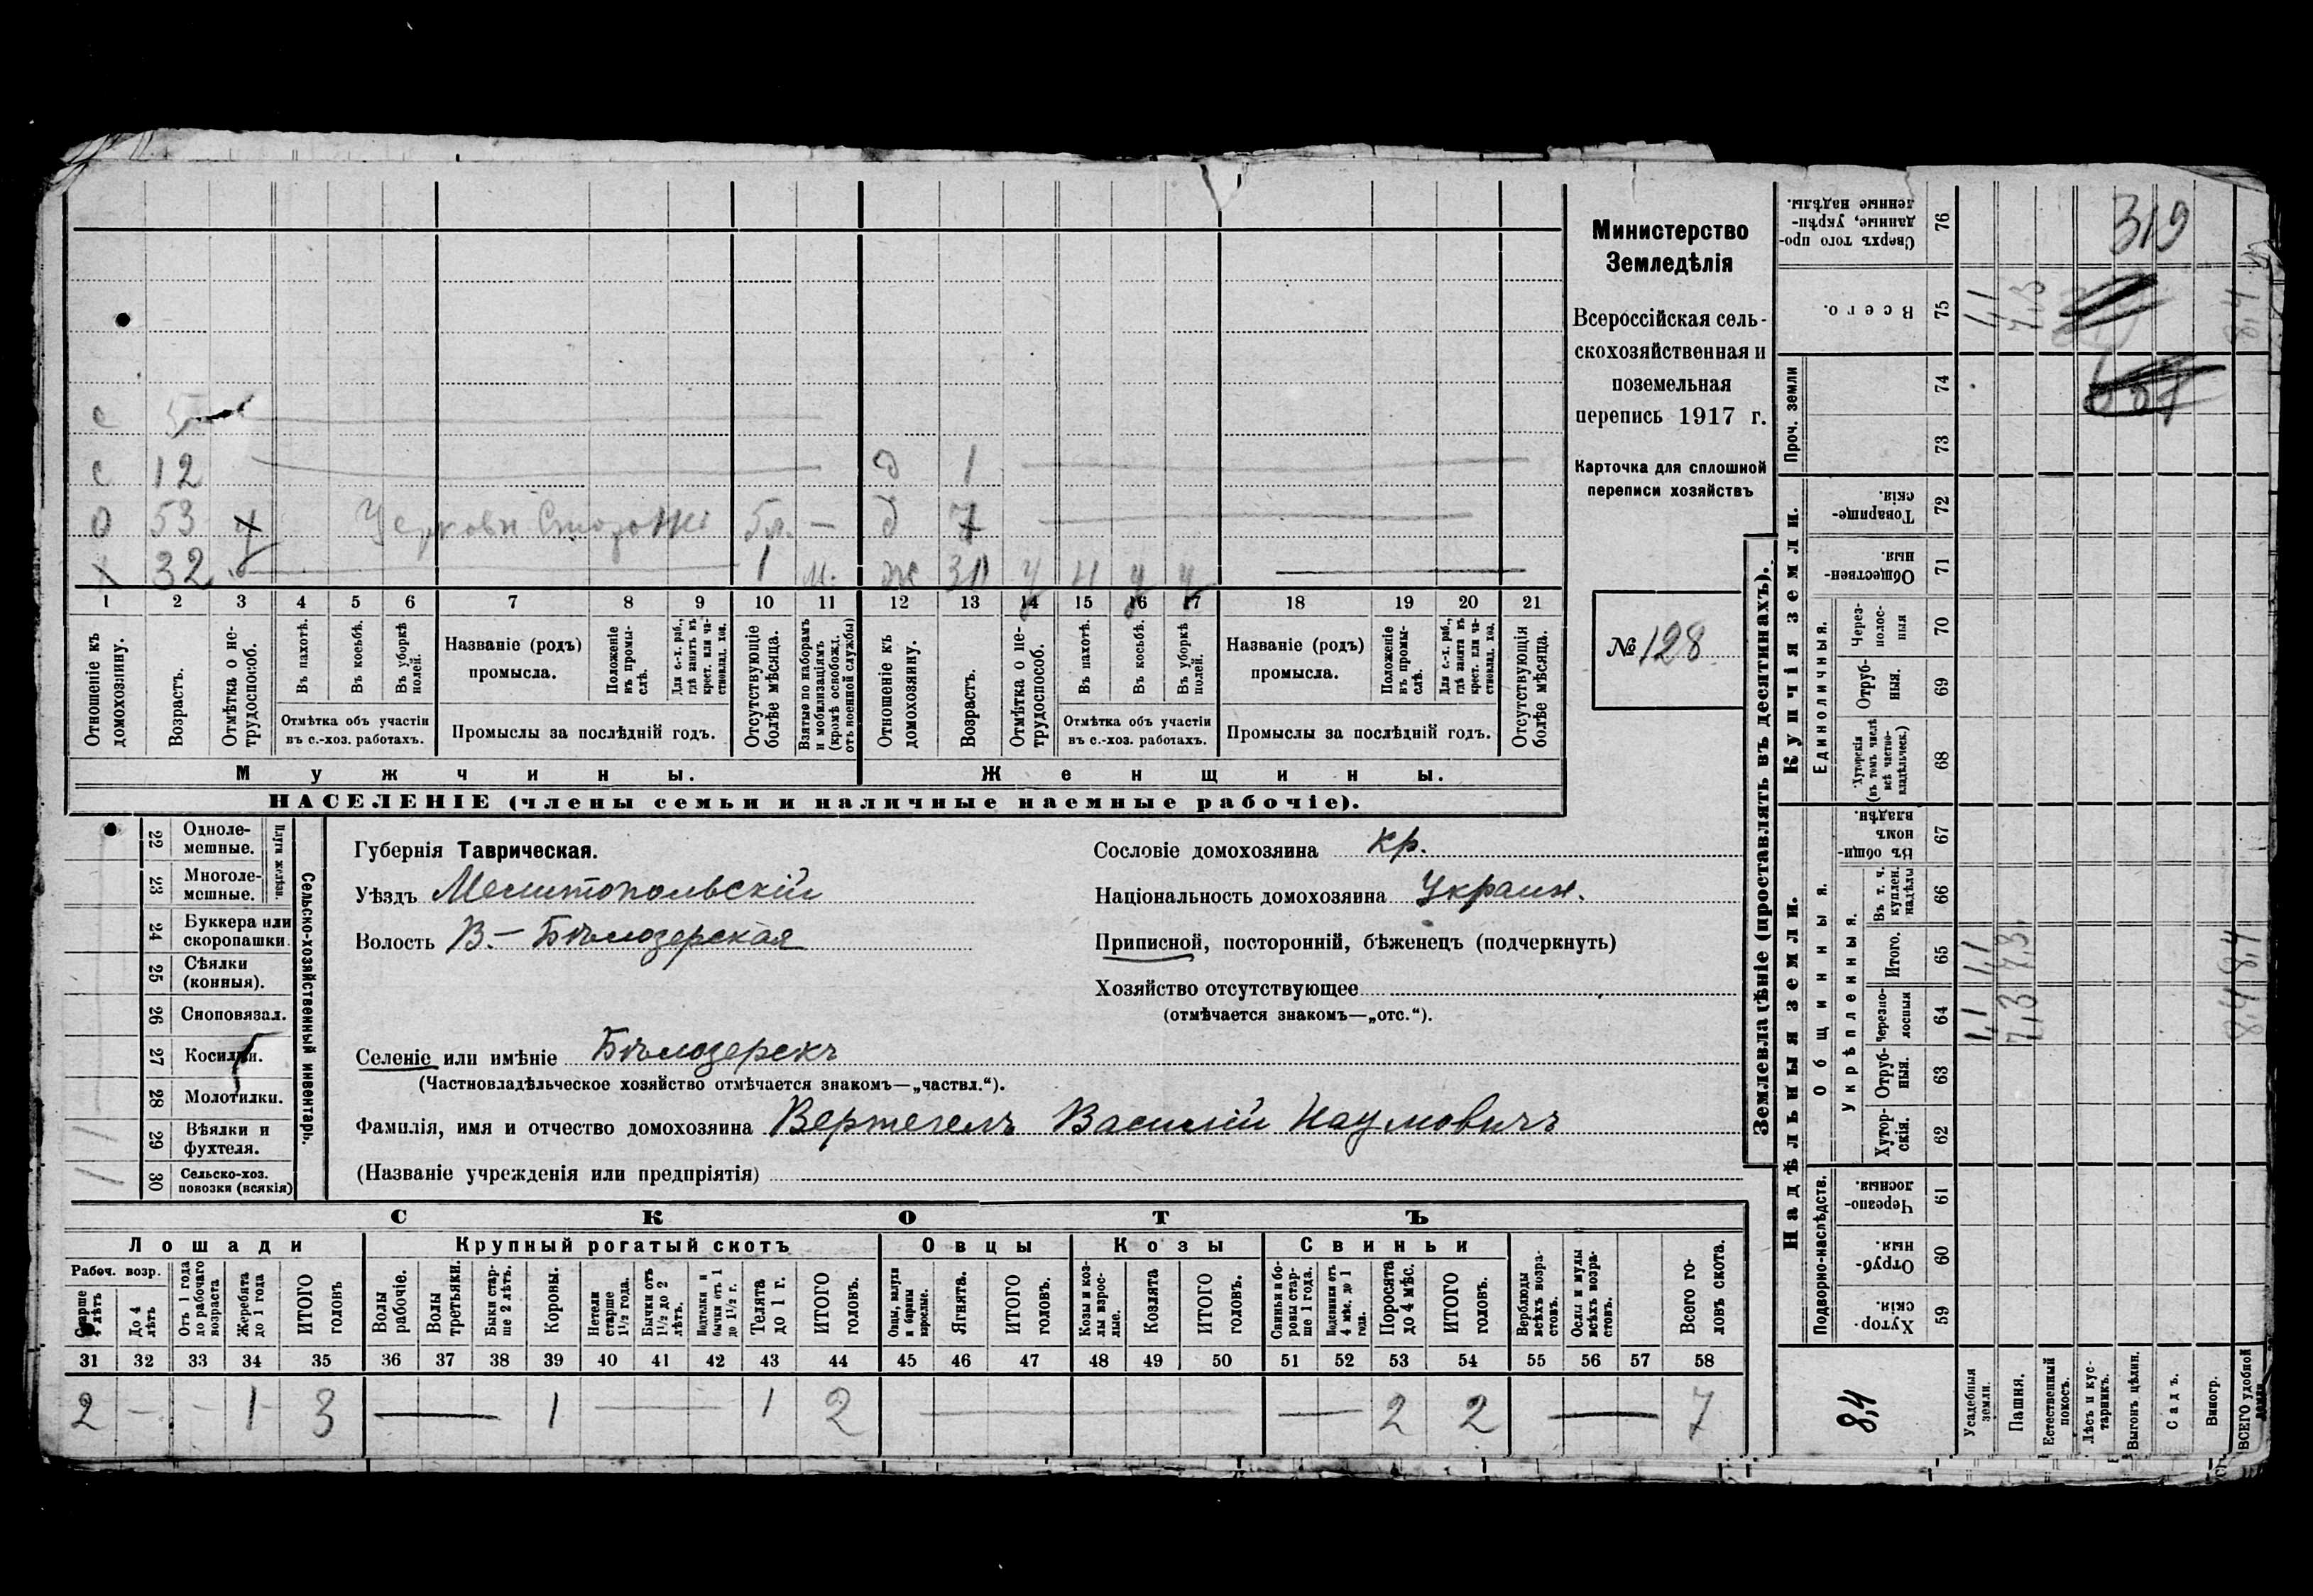 Министерство
Земледѣлія
Всероссійская сель-
скохозяйственная и
поземельная
перепись 1917 г.
Карточка для сплошной
переписи хозяйствъ
№ 128
с 5
с 12 д 1
о 53 Церковн Сторожъ 5л. — д 7
х 32 1 м. ж 30 у ч у у
1 2 3 4 5 6 7 8 9 10 11 12 13 14 15 16 17 18 19 20 21
Отношеніе къ домохозяину.
Возрастъ.
Отмѣтка о не-трудоспособ.
Въ пахотѣ.
Въ косьбѣ.
Въ уборкѣ полей.
Отмѣтка объ участіи въ с.-хоз. работахъ.
Названіе (родъ) промысла.
Положеніе въ промы-слѣ.
Для с.-х. раб., гдѣ занятъ въ крест. или ча-стновлад. хоз.
Промыслы за послѣдній годъ.
Отсутствующіе болѣе мѣсяца.
Взятые по наборамъ и мобилизаціямъ (кромѣ освобожд. отъ военной службы)
Отношеніе къ домохозяину.
Возрастъ.
Отмѣтка о не-трудоспособ.
Въ пахотѣ.
Въ косьбѣ.
Въ уборкѣ полей.
Отмѣтка объ участіи въ с.-хоз. работахъ.
Названіе (родъ) промысла.
Положеніе въ промы-слѣ.
Для с.-х. раб., гдѣ занята въ крест. или ча-стновлад. хоз.
Промыслы за послѣдній годъ.
Отсутствующія болѣе мѣсяца.
Мужчины. Женщины.
НАСЕЛЕНІЕ (члены семьи и наличные наемные рабочіе).
Сельско-хозяйственный инвентарь.
Плуги желѣзн.
22 Одноле-мешные.
23 Многоле-мешные.
24 Буккера или скоропашки.
25 Сѣялки (конныя).
26 Сноповязал.
27 Косилки.
28 Молотилки.
29 Вѣялки и фухтеля. 1
30 Сельско-хоз. повозки (всякія) 1
Губернія Таврическая.
Уѣздъ Мелитопольскій
Волость В.-Бѣлозерская
Сословіе домохозяина кр.
Національность домохозяина Украин.
Приписной, посторонній, бѣженецъ (подчеркнуть)
Хозяйство отсутствующее
(отмѣчается знакомъ—„отс.“).
Селеніе или имѣніе Бѣлозерскъ
(Частновладѣльческое хозяйство отмѣчается знакомъ—„частвл.“).
Фамилія, имя и отчество домохозяина Вертегелъ Василій Наумовичъ
(Названіе учрежденія или предпріятія)
СКОТЪ
Лошади Крупный рогатый скотъ Овцы Козы Свиньи
Рабоч. возр.
Старше 4 лѣтъ
До 4 лѣтъ
Отъ 1 года до рабочаго возраста
Жеребята до 1 года
ИТОГО головъ
Волы рабочіе.
Волы третьяки.
Быки стар-ше 2 лѣтъ.
Коровы.
Нетели старше 1½ года.
Бычки отъ 1½ до 2 лѣтъ.
Подтелки и бычки отъ 1 до 1½ г.
Телята до 1 г.
ИТОГО головъ.
Овцы, валухи и бараны взрослые.
Ягнята.
ИТОГО головъ.
Козы и коз-лы взрос-лые.
Козлята
ИТОГО головъ.
Свиньи и бо-ровы стар-ше 1 года.
Подсвинки отъ 4 мѣс. до 1 года.
Поросята до 4 мѣс.
ИТОГО головъ.
Верблюды всѣхъ возра-стовъ.
Ослы и мулы всѣхъ возра-стовъ.
Всего го-ловъ скота.
31 32 33 34 35 36 37 38 39 40 41 42 43 44 45 46 47 48 49 50 51 52 53 54 55 56 57 58
2 — — 1 3 — 1 — 1 2 — — 2 2 — 7
Землевладѣніе (проставлять въ десятинахъ).
Надѣльныя земли. Купчія земли. Проч. земли
Подворно-наслѣдств.
Общинныя.
Укрѣпленныя.
Единоличныя.
59 Хутор-скія.
60 Отруб-ныя.
61 Черезпо-лосныя.
62 Хутор-скія.
63 Отруб-ныя.
64 Черезпо-лосныя 1,1 7,3 8,4
65 Итого. 1,1 7,3 8,4
66 Въ т. ч. куплен. надѣлы
67 Въ общи-номъ владѣн.
68 Хуторскія (въ томъ числѣ всѣ частно-владѣльческ.)
69 Отруб-ныя.
70 Через-полос-ныя
71 Обществен-ныя.
72 Товарище-скія.
73
74
75 Всего. 1,1 7,3 8,4
76 Сверхъ того про-данные, укрѣп-ленные надѣлы.
319
8,4
Усадебныя земли.
Пашня.
Естественный покосъ.
Лѣсъ и кус-тарникъ.
Выгонъ цѣлин.
Садъ.
Виногр.
ВСЕГО удобной земли